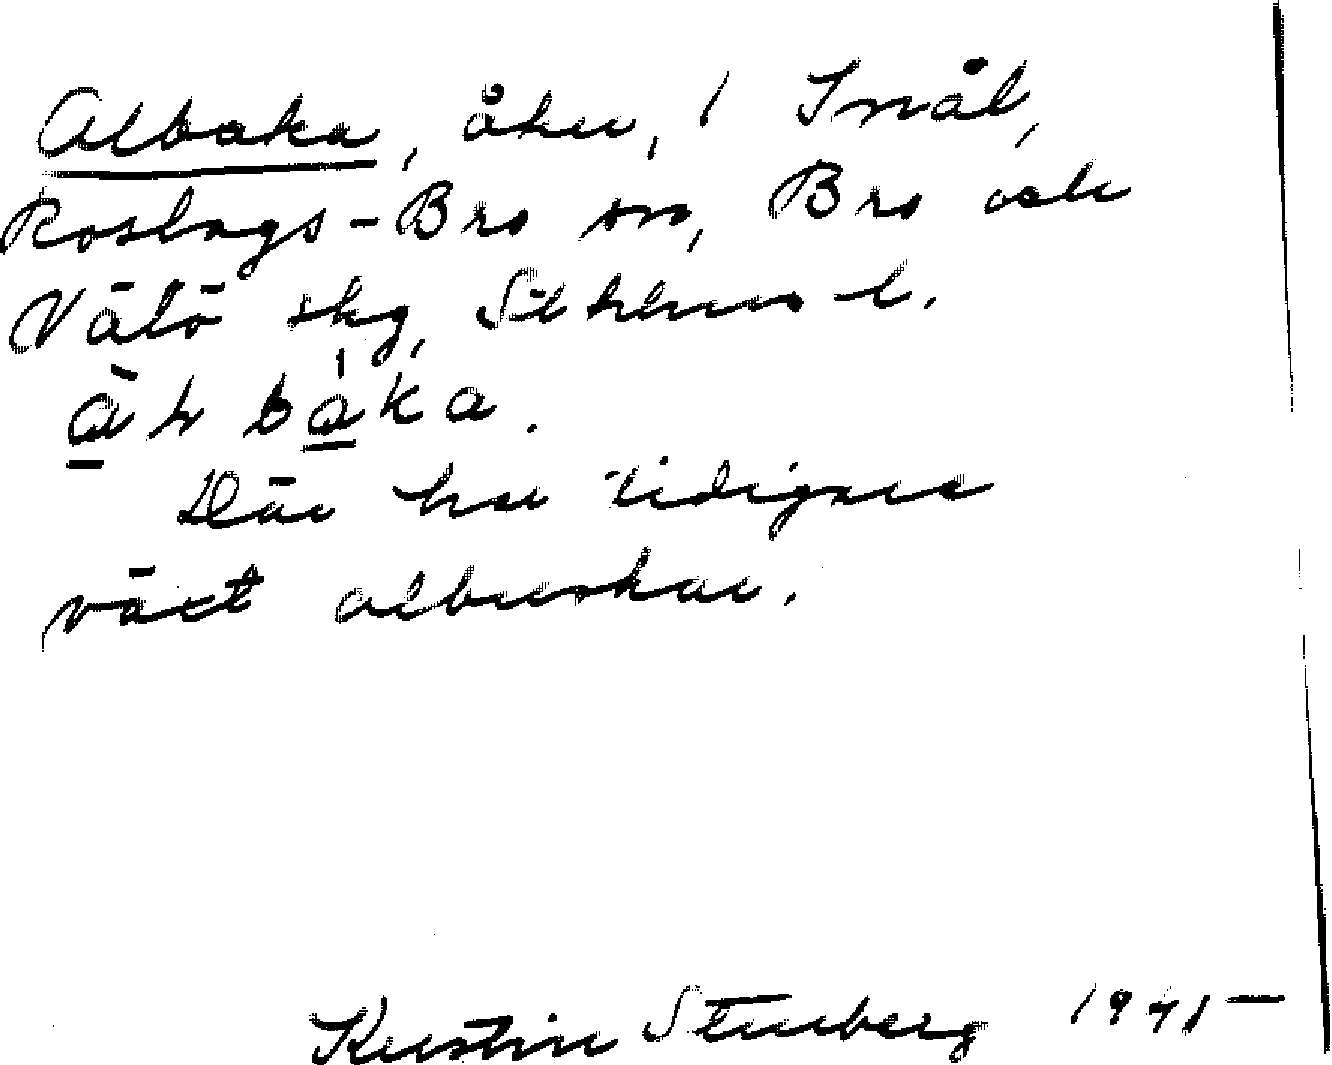 Albaka, åker, i Snål,
Roslags-Bro sn, Bro och
Vätö skg, Sthlms l.
baka.
Där har tidigare
växt albuskar.
Kerstin Stenberg 1945